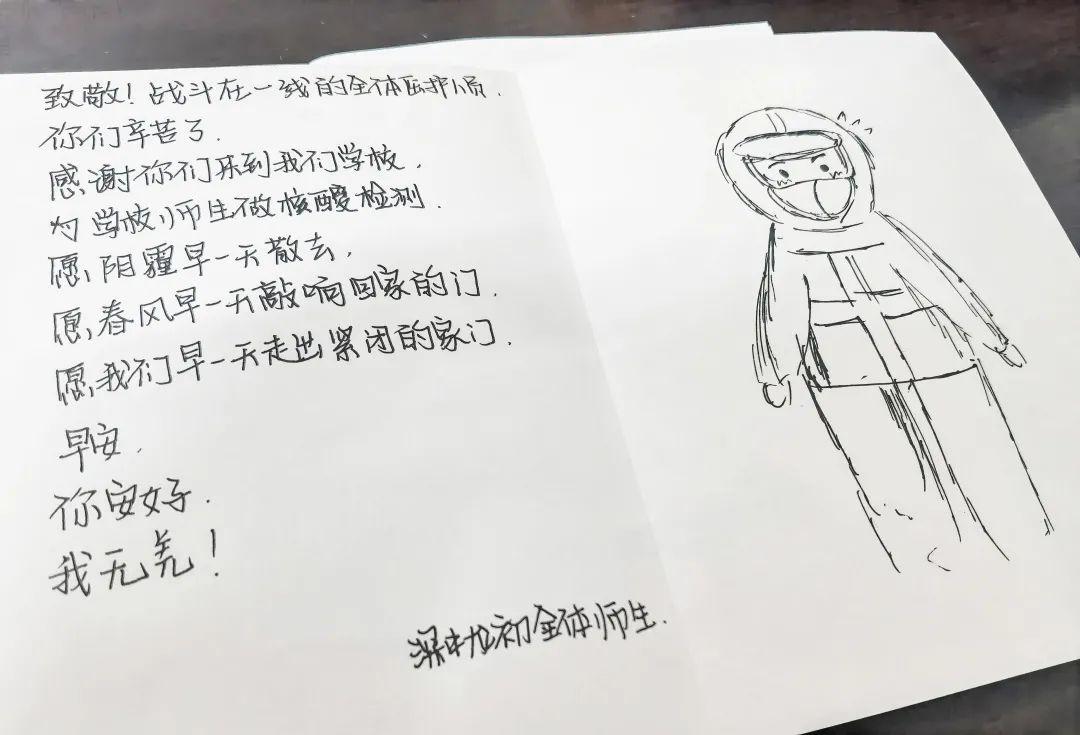 致敬！战斗在一线的全体医护人员.
你们辛苦了.
感谢你们来到我们学校.
为学校师生做核酸检测.
愿阴霾早一天散去.
愿春风早一天敲响回家的门.
愿我们早一天走出紧闭的家门.
早安.
你安好.
我无羌！
深中龙初全体师生.